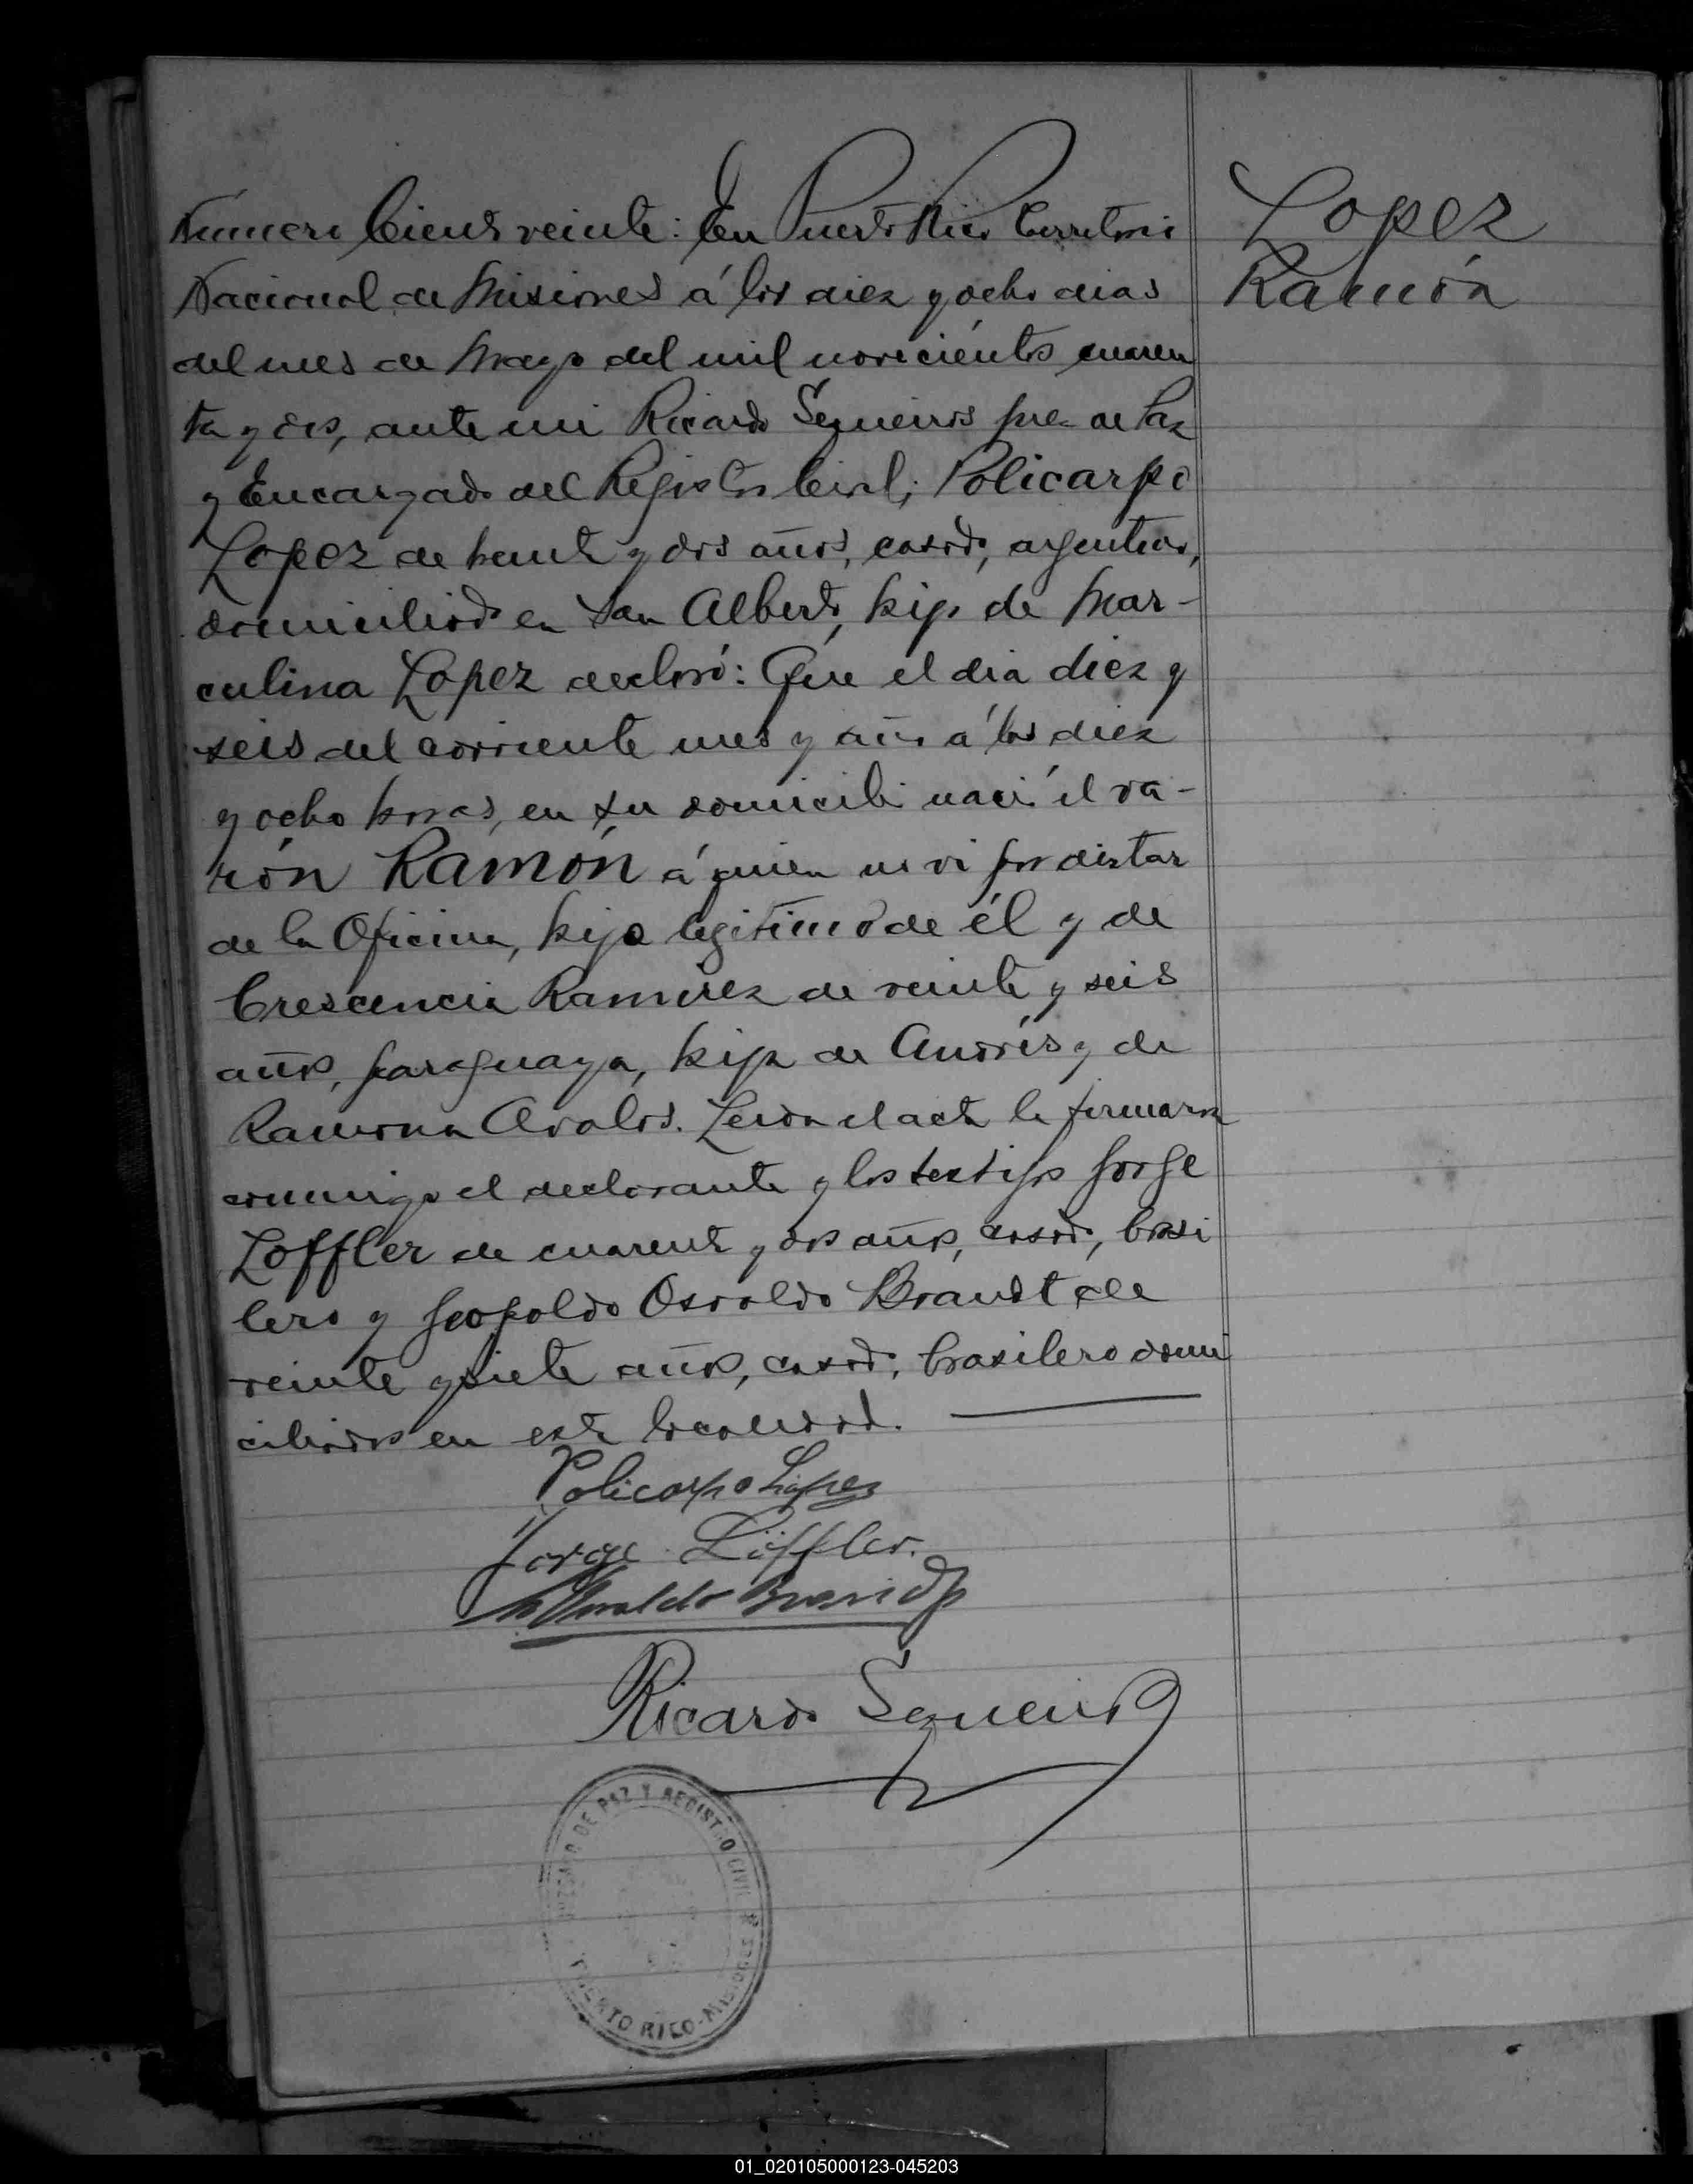 Lopez
Ramón
Número Ciento veinte: En Puerto Rico Territorio
Nacional de Misiones á los diez y ocho dias
del mes de Mayo del mil novecientos cuaren
ta y dos, ante mi Ricardo Sequeiros Juez de Paz
y Encargado del Registro Civil; Policarpo
Lopez de treinta y dos años, casado, argentino,
domiciliado en San Alberto, hijo de Mar-
culina Lopez declaró: Que el dia diez y
seis del corriente mes y año á las diez
y ocho horas, en su domicilio nació el va-
rón Ramón á quien no vi por distar
de la Oficina, hijo legitimo de él y de
Crescencia Ramirez de veinte y seis
años, paraguaya, hija de Andrés y de
Ramona Avalos. Leida el acta la firmaron
conmigo el declarante y los testigos Jorge
Loffler de cuarenta y dos años, casado, brasi
lero y Leopoldo Osvaldo Brandt de
veinte y siete años, casado, brasilero domi
ciliados en esta localidad.
Policarpo Lopez
Jorge Löffler.
Osvaldo Brandt
Ricardo Sequeiros
JUZGADO DE PAZ Y REGISTRO CIVIL
PUERTO RICO-MISIONES
01_020105000123-045203